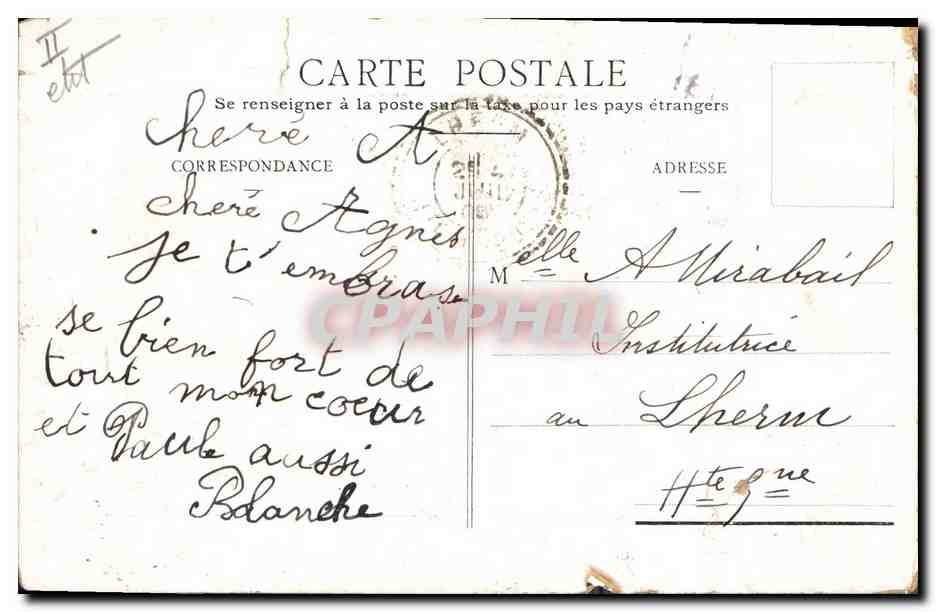 II
CARTE POSTALE
Se renseigner à la poste sur la taxe pour les pays étrangers
cheré A
CORRESPONDANCE
cheré Agnès
je t'embras
se bien fort de
tout mon coeur
et Paule aussi
Blanche
ADRESSE
Melle A Mirabail
Institutrice
au Lherm
Hte Gne
CPAPHIL